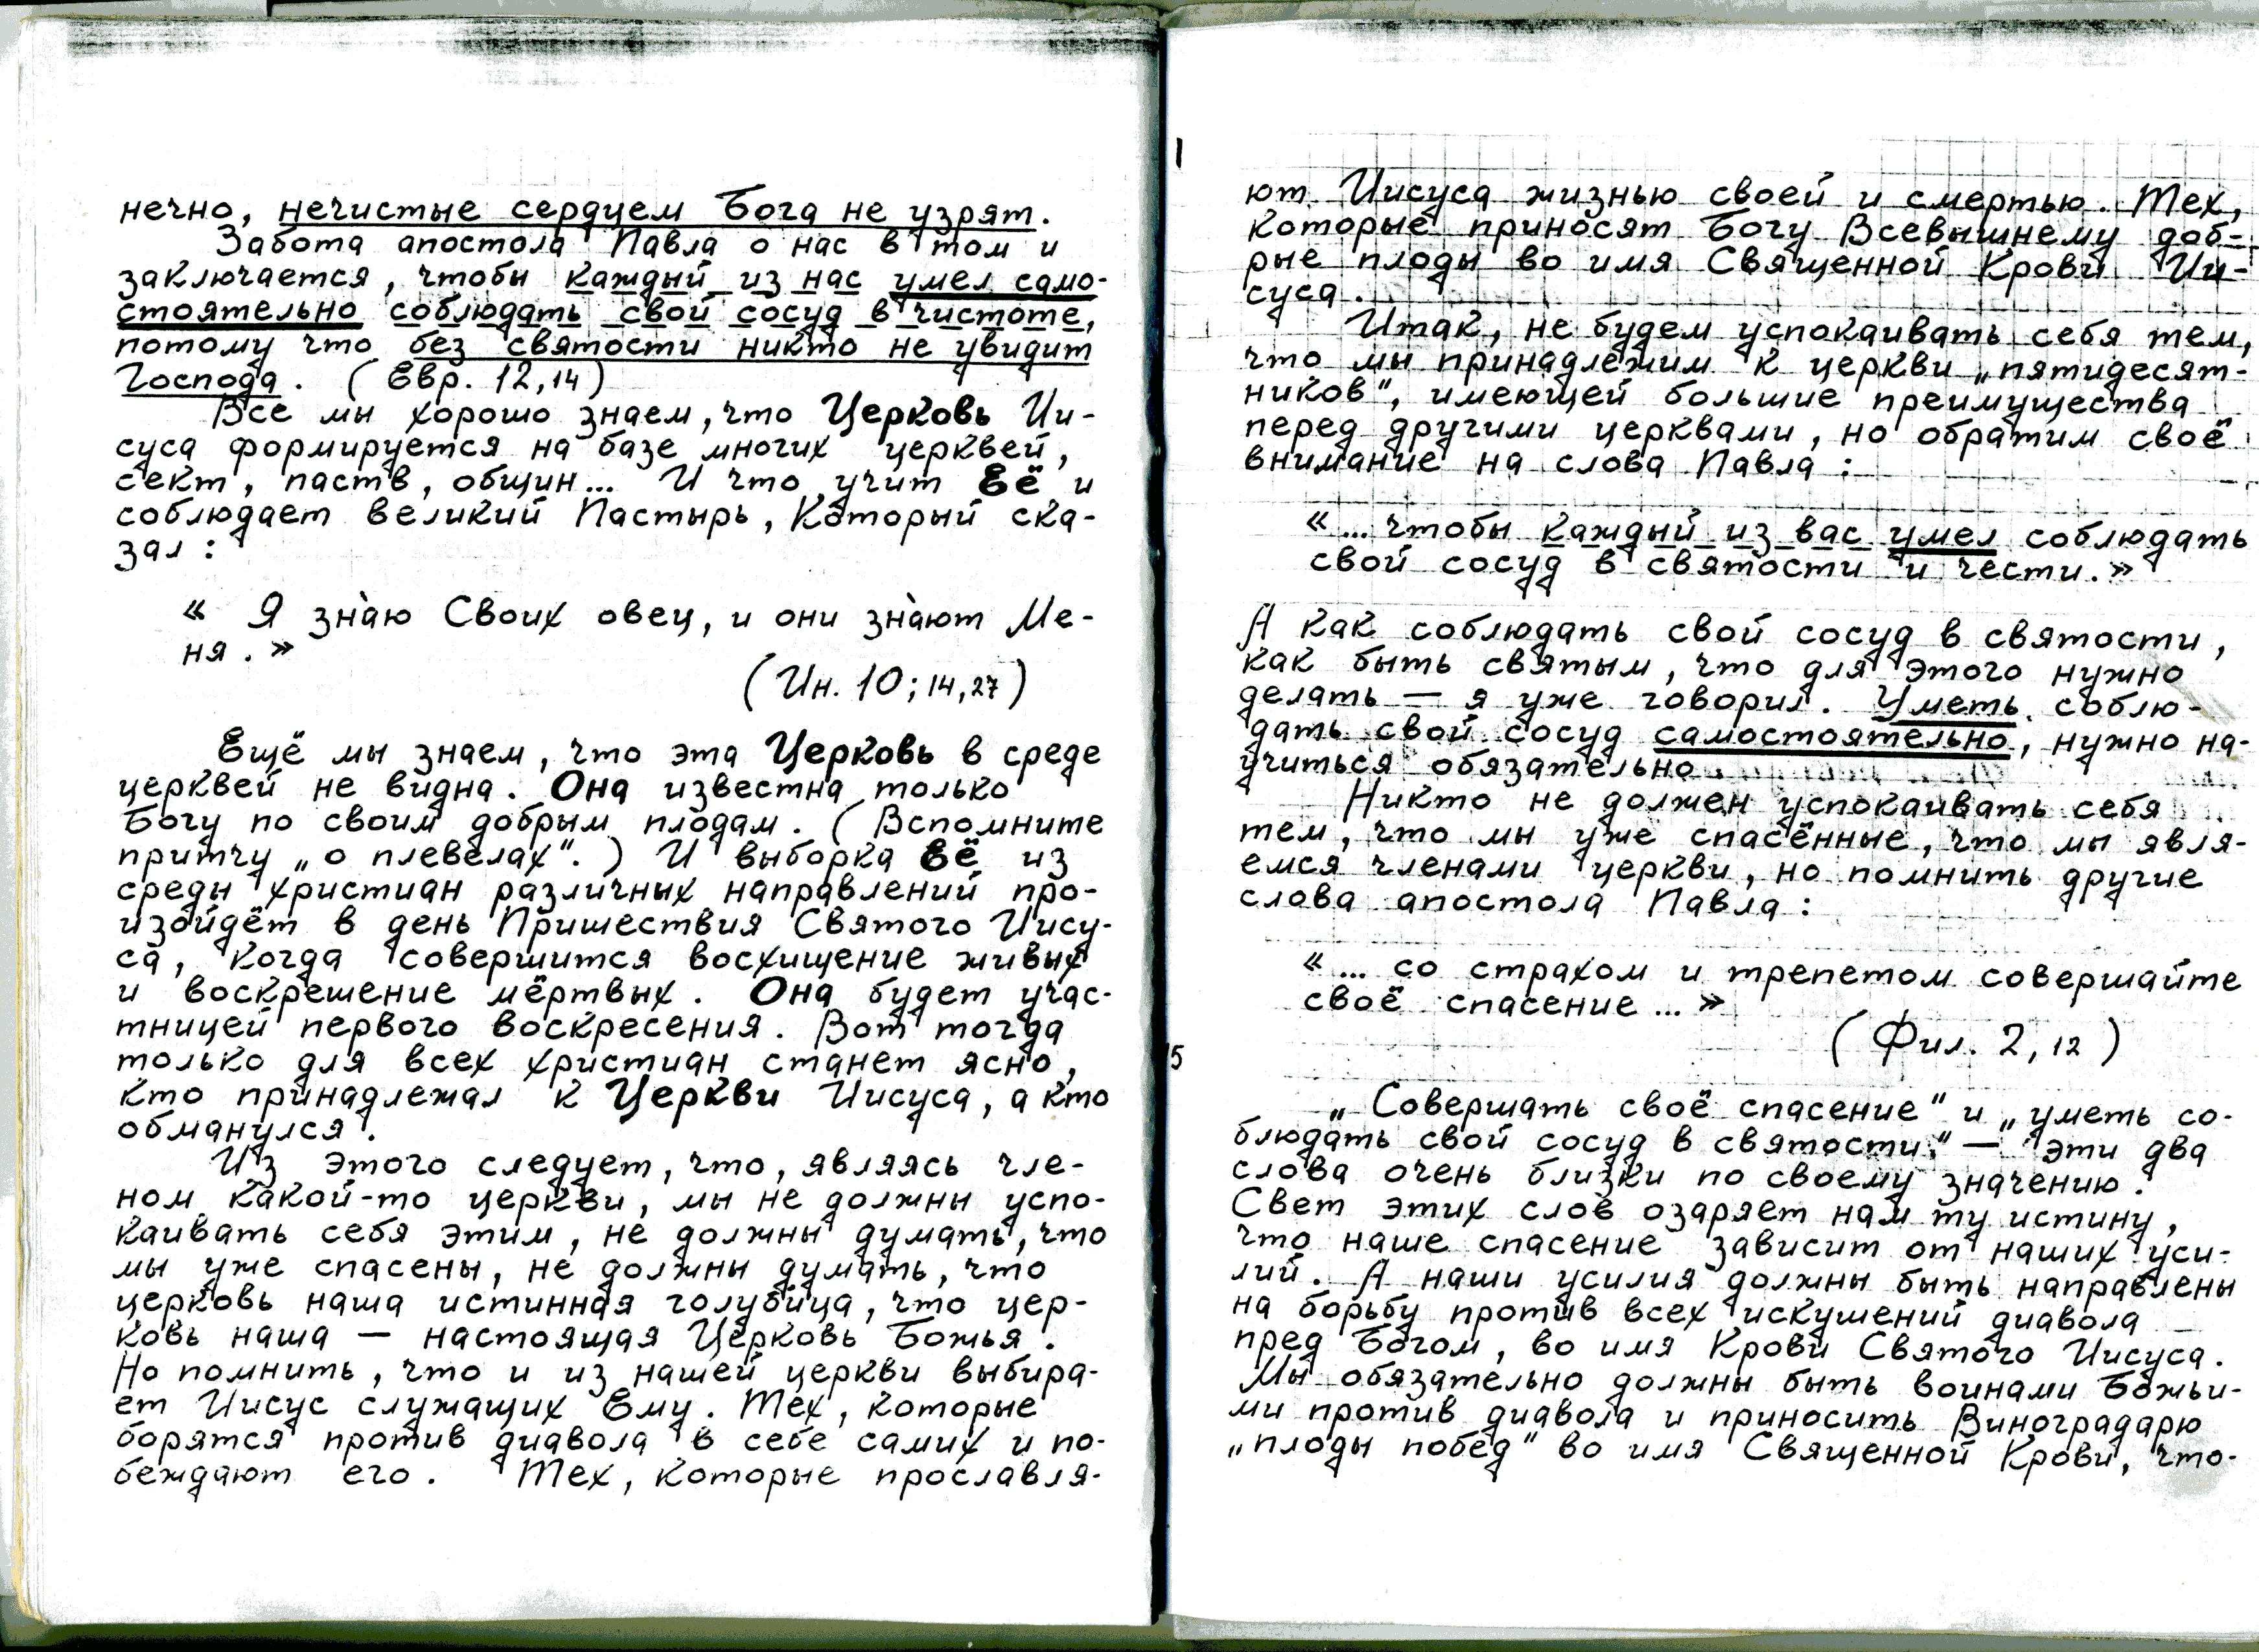 нечно, нечистые сердцем Бога не узрят.
Забота апостола Павла о нас в том и
заключается, чтобы каждый из нас умел само-
стоятельно соблюдать свой сосуд в чистоте,
потому что без святости никто не увидит
Господа. (Евр. 12,14)
Все мы хорошо знаем, что Церковь Ии-
суса формируется на базе многих церквей,
сект, паств, общин... И что учит Её и
соблюдает великий Пастырь, Который ска-
зал:
« Я знаю Своих овец, и они знают Ме-
ня. »
(Ин. 10; 14,27)
Ещё мы знаем, что эта Церковь в среде
церквей не видна. Она известна только
Богу по своим добрым плодам. (Вспомните
притчу „о плевелах“.) И выборка Её из
среды христиан различных направлений про-
изойдёт в день Пришествия Святого Иису-
са, когда совершится восхищение живых
и воскрешение мёртвых. Она будет учас-
тницей первого воскресения. Вот тогда
только для всех христиан станет ясно,
кто принадлежал к Церкви Иисуса, а кто
обманулся.
Из этого следует, что, являясь чле-
ном какой-то церкви, мы не должны успо-
каивать себя этим, не должны думать, что
мы уже спасены, не должны думать, что
церковь наша истинная голубица, что цер-
ковь наша — настоящая Церковь Божья.
Но помнить, что и из нашей церкви выбира-
ет Иисус служащих Ему. Тех, которые
борятся против диавола в себе самих и по-
беждают его. Тех, которые прославля-
ют Иисуса жизнью своей и смертью. Тех,
которые приносят Богу Всевышнему доб-
рые плоды во имя Священной Крови Ии-
суса.
Итак, не будем успокаивать себя тем,
что мы принадлежим к церкви „пятидесят-
ников“, имеющей большие преимущества
перед другими церквами, но обратим своё
внимание на слова Павла:
«... чтобы каждый из вас умел соблюдать
свой сосуд в святости и чести.»
А как соблюдать свой сосуд в святости,
как быть святым, что для этого нужно
делать — я уже говорил. Уметь соблю-
дать свой сосуд самостоятельно, нужно на-
учиться обязательно
Никто не должен успокаивать себя
тем, что мы уже спасённые, что мы явля-
емся членами церкви, но помнить другие
слова апостола Павла:
«... со страхом и трепетом совершайте
своё спасение... »
(Фил. 2,12)
5
„Совершать своё спасение“ и „уметь со-
блюдать свой сосуд в святости“ — эти два
слова очень близки по своему значению.
Свет этих слов озаряет нам ту истину,
что наше спасение зависит от наших уси-
лий. А наши усилия должны быть направлены
на борьбу против всех искушений диавола
пред Богом, во имя Крови Святого Иисуса.
Мы обязательно должны быть воинами Божьи-
ми против диавола и приносить Виноградарю
„плоды побед“ во имя Священной Крови, что-